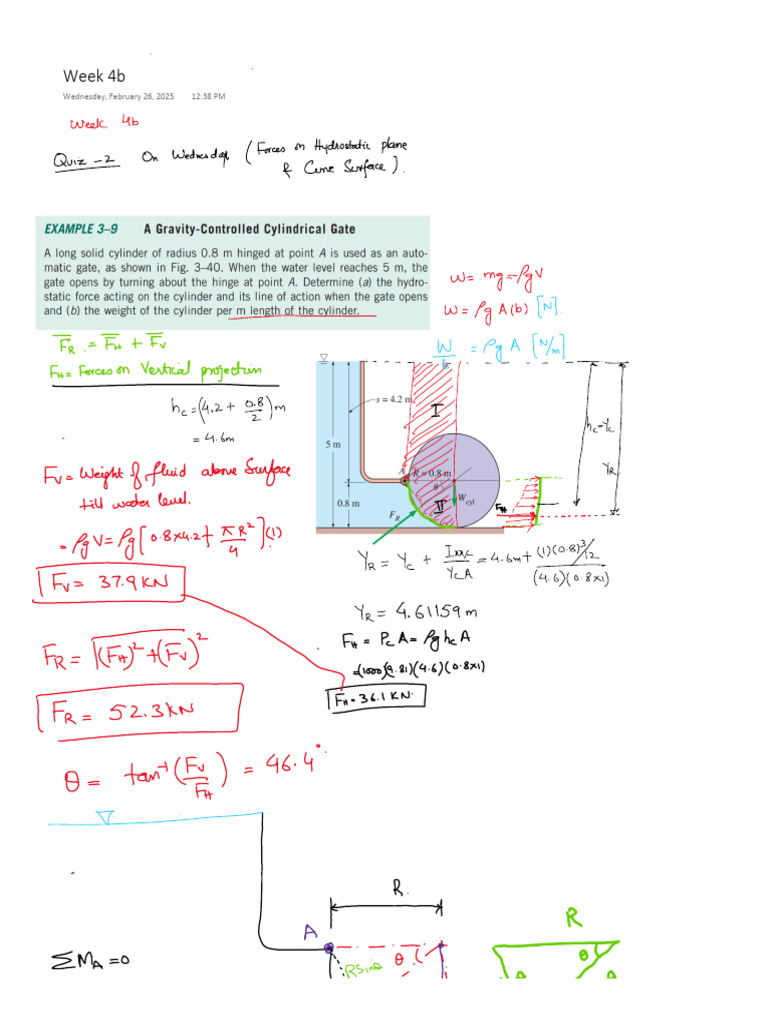 Week 4b
Wednesday, February 26, 2025 12:38 PM
Week 4b
Quiz -2 On Wednesday (Forces on Hydrostatic plane
& Curve Surface).
EXAMPLE 3–9 A Gravity-Controlled Cylindrical Gate
A long solid cylinder of radius 0.8 m hinged at point A is used as an auto-
matic gate, as shown in Fig. 3–40. When the water level reaches 5 m, the
gate opens by turning about the hinge at point A. Determine (a) the hydro-
static force acting on the cylinder and its line of action when the gate opens
and (b) the weight of the cylinder per m length of the cylinder.
W = mg = ρgV
W = ρg A(b) [N].
W/b = ρg A [N/m]
F̅R = F̅H + F̅V
FH = Forces on Vertical projection
hc = (4.2 + 0.8/2) m
= 4.6m
FV = Weight of fluid above Surface
till water level.
= ρgV = ρg [0.8×4.2 + πR²/4] (1)
FV = 37.9 KN
FR = √(F̅H)² + (F̅V)²
FR = 52.3 KN
θ = tan⁻¹ (FV/FH) = 46.4°
s = 4.2 m
I
5 m
A
R = 0.8 m
θ
0.8 m
II
Wcyl
FR
FH
hc = Yc
YR
YR = Yc + Ixx,c/YcA = 4.6m + (1)(0.8)³/12 / (4.6)(0.8×1)
YR = 4.61159 m
FH = Pc A = ρg hc A
= (1000)(9.81)(4.6)(0.8×1)
FH = 36.1 KN.
R
A
θ
R Sinθ
ΣMA = 0
R
θ